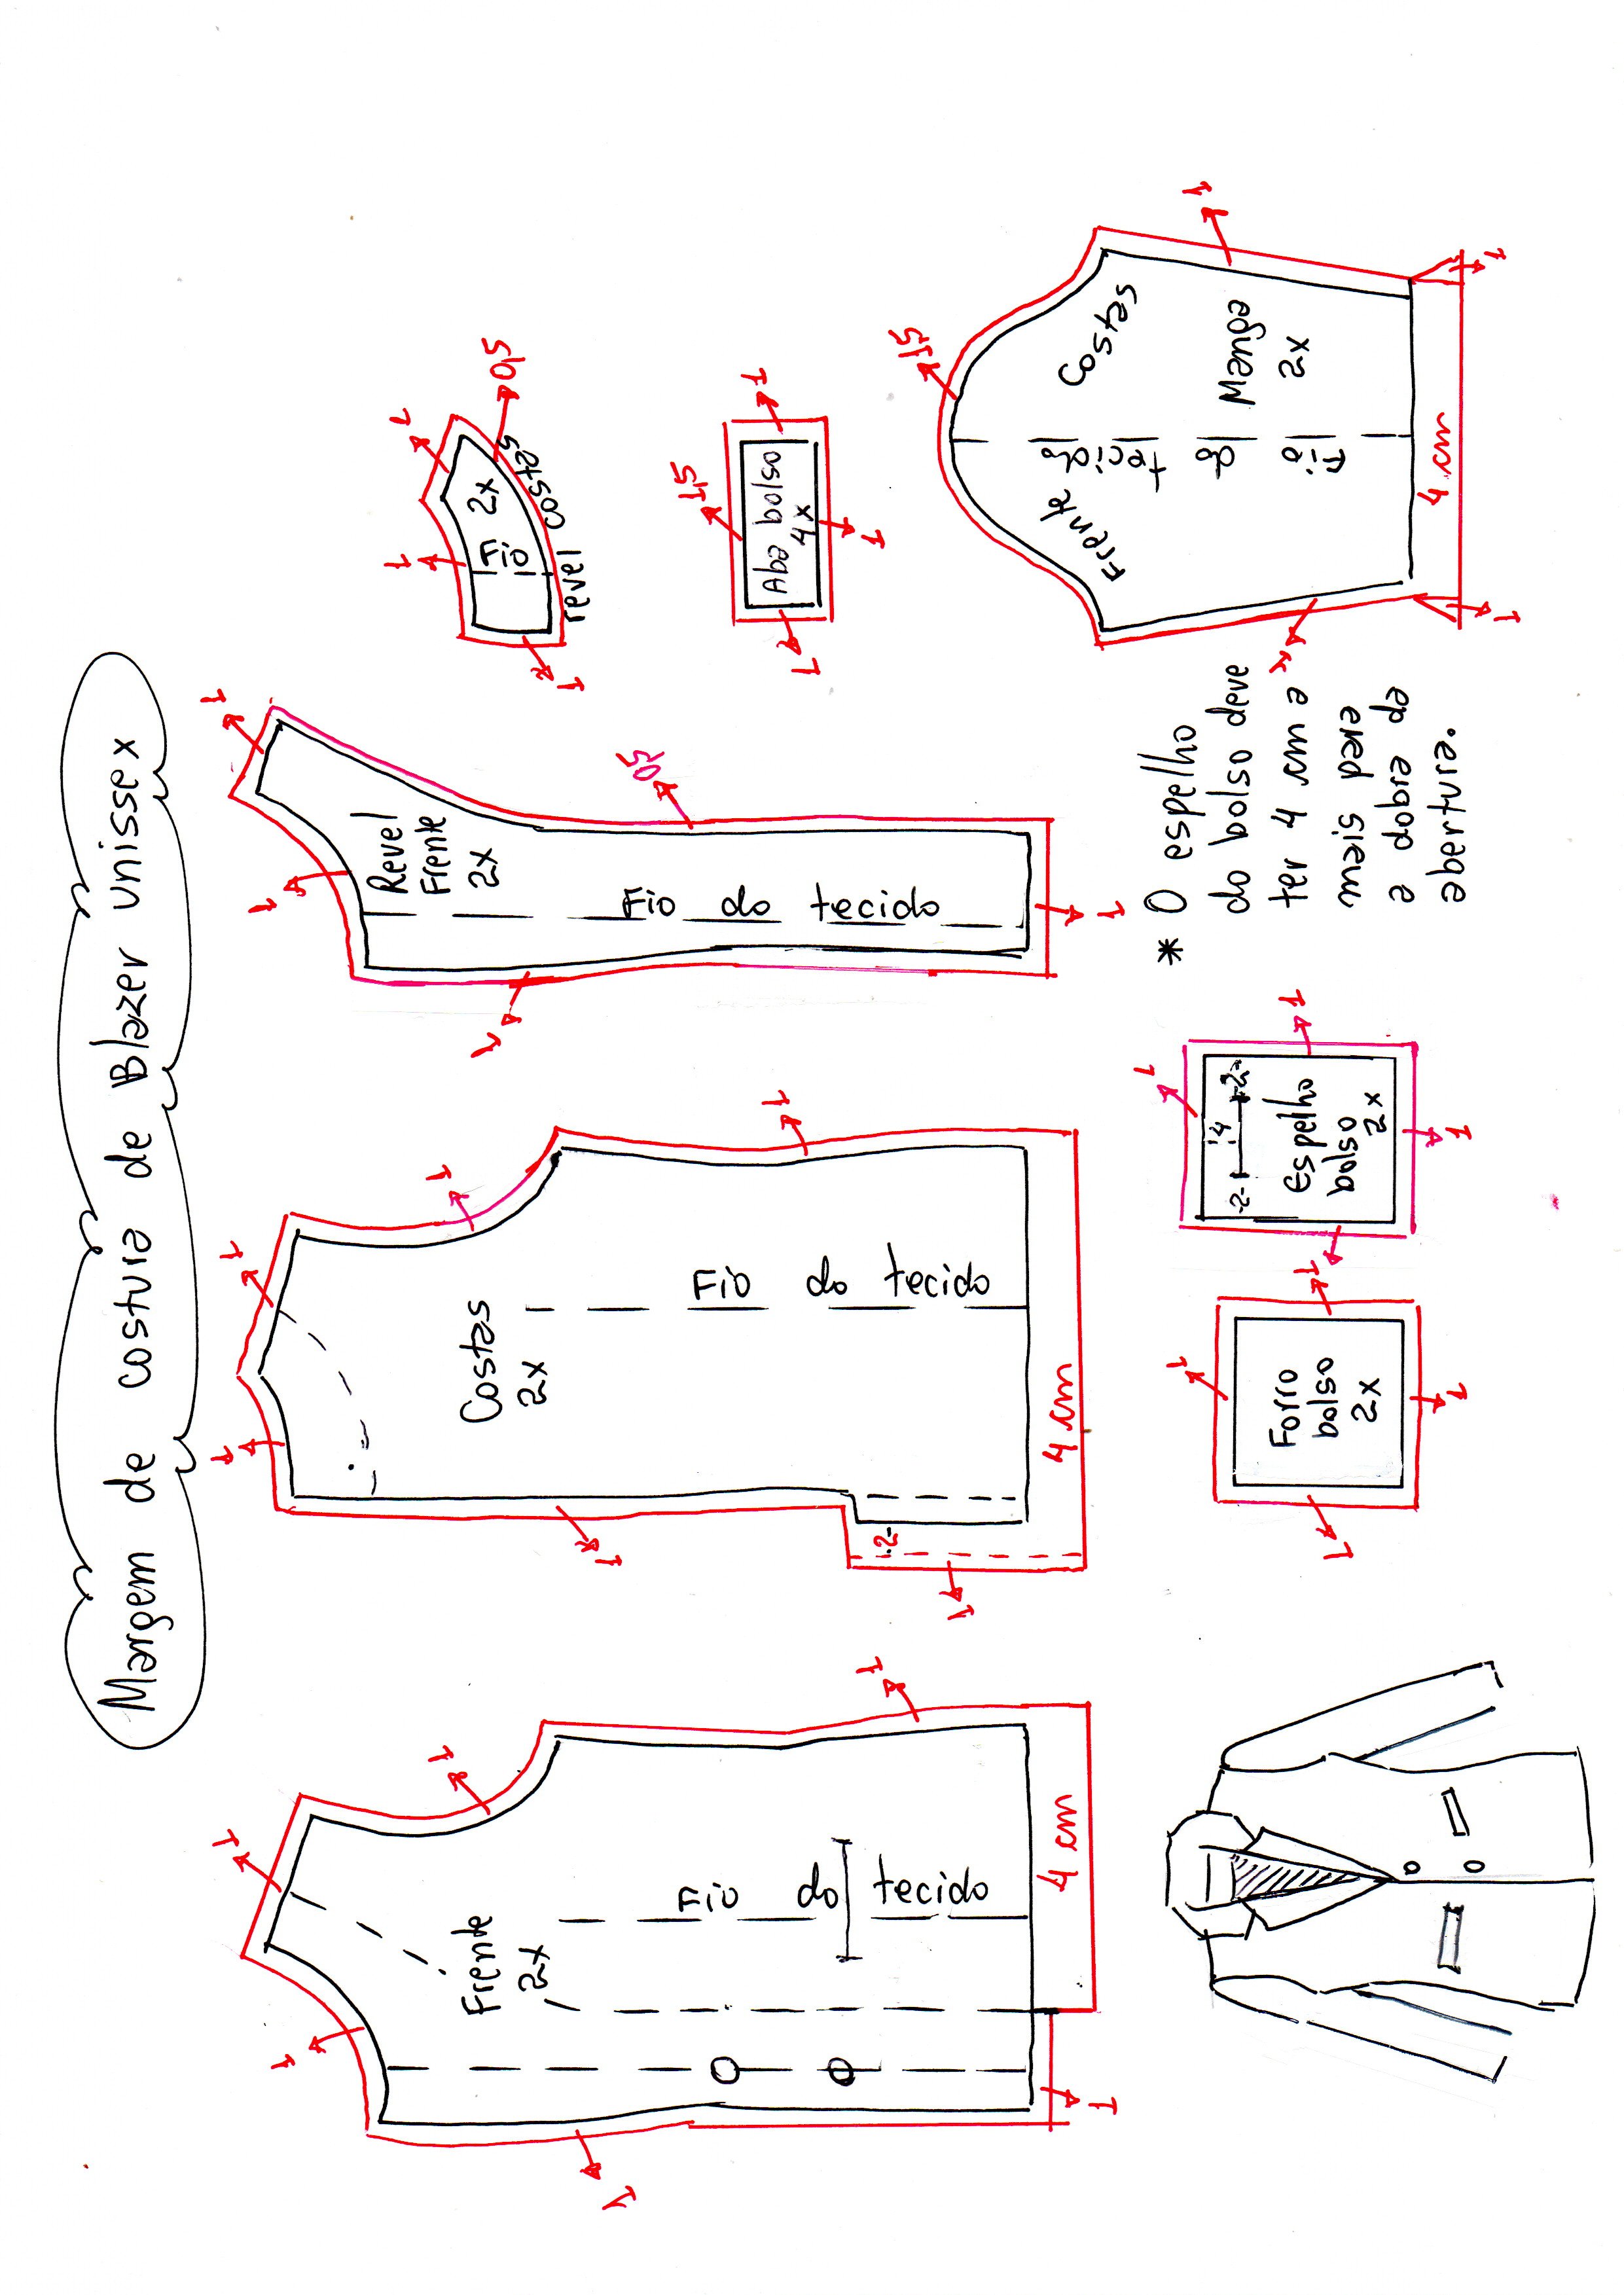 Margem de costura de Blazer unissex
Frente
2x
Fio do tecido
4 cm
1
1
1
1
1
1
Costas
2x
Fio do tecido
4 cm
-2-
1
1
1
1
1
1
Revel
Frente
2x
Fio do tecido
1
1
0,5
1
1
2x
Fio
revel costas
1
1
0,5
1
Aba bolso
4x
1,5
1
1
1
Frente
Costas
Fio do tecido
Manga
2x
1,5
1
1
1
1
4 cm
Forro
bolso
2x
1
1
1
1
-2-
4
-2-
Espelho
bolso
2x
1
1
1
* O espelho
do bolso deve
ter 4 cm a
mais para
a dobra da
abertura.